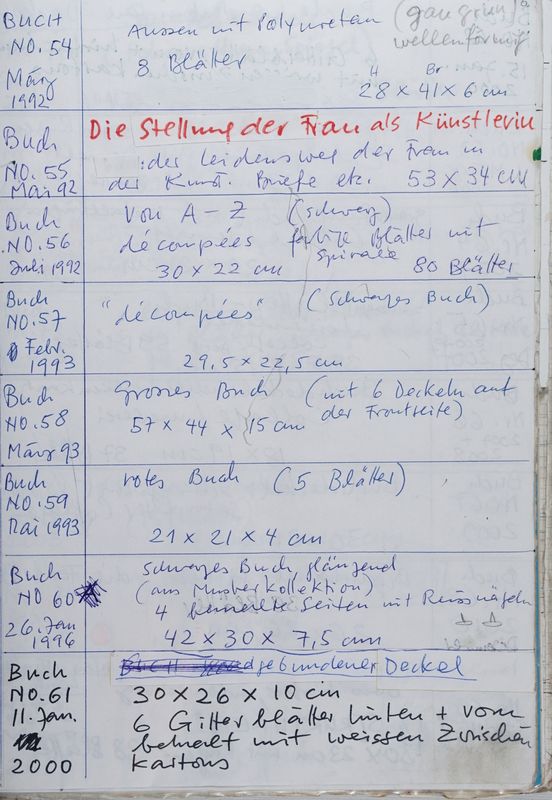 BUCH
NO. 54
März
1992
Aussen mit Polyuretan (ganz grün)
wellenförmig
8 Blätter
H Br
28 x 41 x 6 cm
Buch
NO. 55
Mai 92
Die Stellung der Frau als Künstlerin
: der Leidensweg der Frau in
der Kunst. Briefe etc. 53 x 34 cm
Buch
NO. 56
Juli 1992
Von A - Z (schwarz)
découpées farbige Blätter mit
Spirale
30 x 22 cm 80 Blätter
Buch
NO. 57
Febr.
1993
"découpées" (schwarzes Buch)
29,5 x 22,5 cm
Buch
NO. 58
März 93
Grosses Buch (mit 6 Deckeln auf
der Frontseite)
57 x 44 x 15 cm
Buch
NO. 59
Mai 1993
rotes Buch (5 Blätter)
21 x 21 x 4 cm
Buch
NO 60
26. Jan
1996
schwarzes Buch glänzend
(aus Musterkollektion)
4 bemalte Seiten mit Reissnägeln
42 x 30 x 7,5 cm
Buch
NO. 61
11. Jan.
2000
gebundener Deckel
30 x 26 x 10 cm
6 Gitterblätter hinten + vorn
bemalt mit weissen Zwischen
Kartons